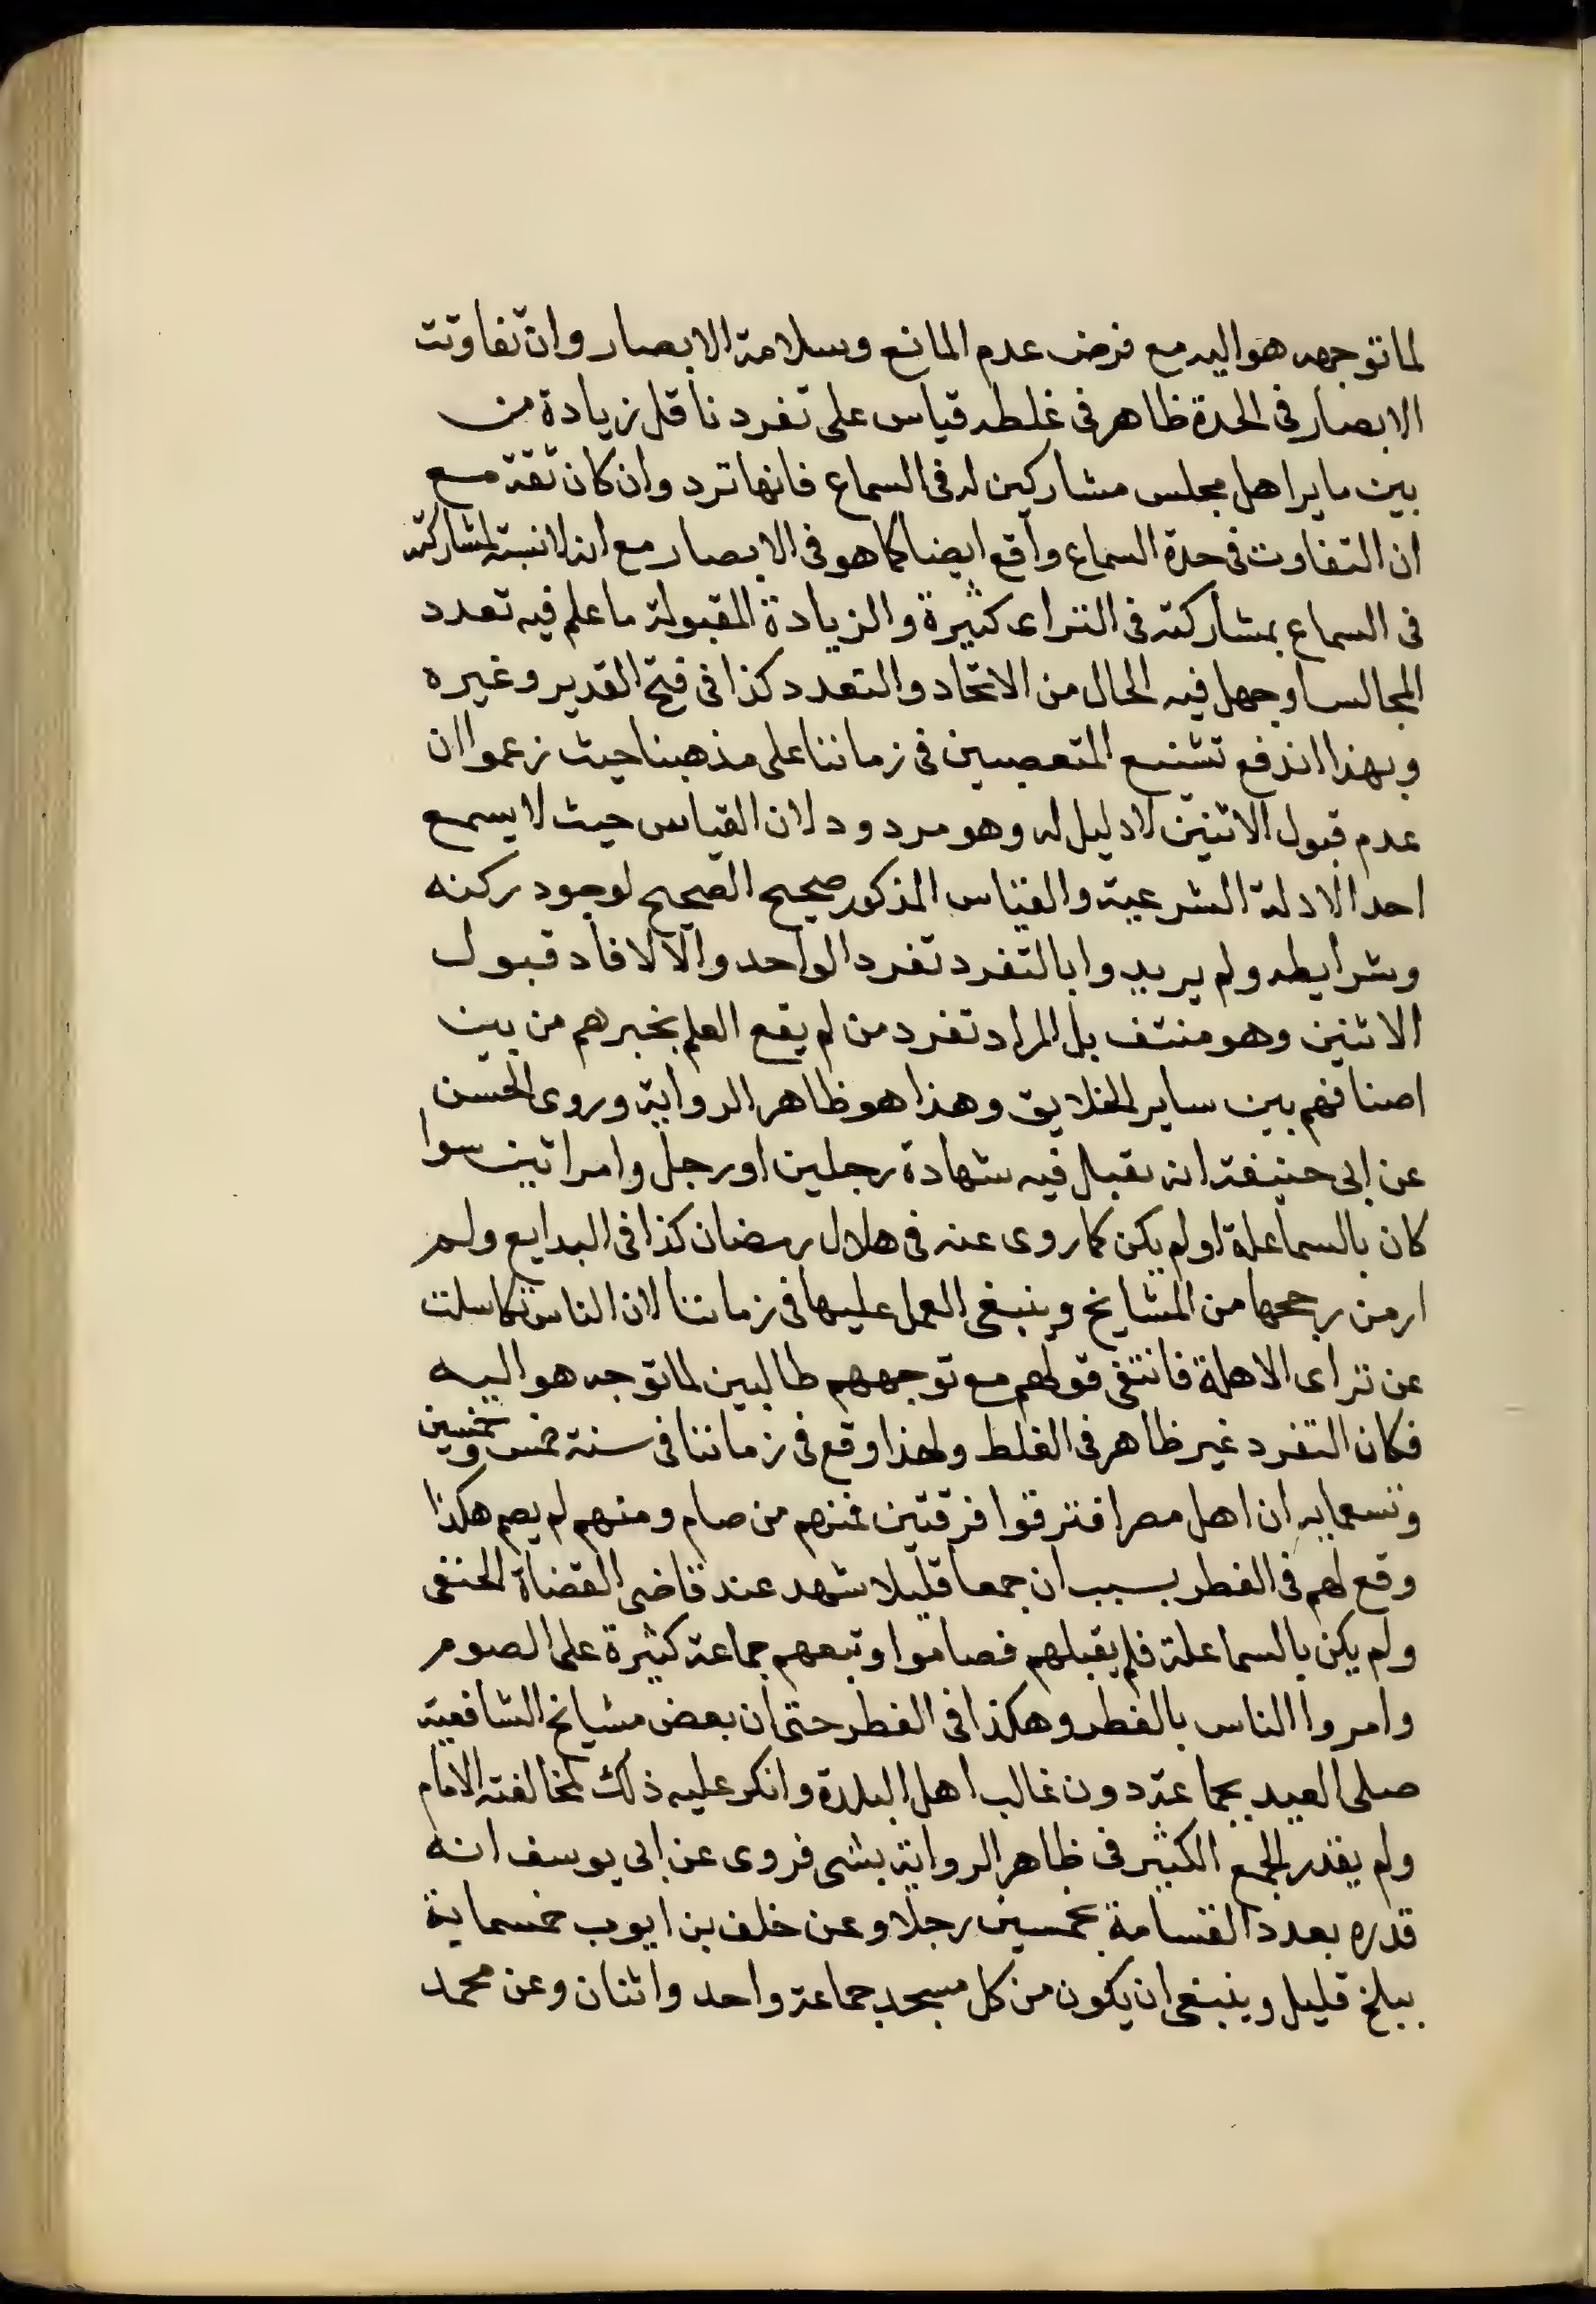 لما توجه هو اليه مع فرض عدم المانع وسلامة الابصار وان تفاوتت
الابصار فى الحدة ظاهر فى غلطه قياس على تفرد ناقل زيادة من
بين ساير اهل مجلس مشاركين له فى السماع فانها ترد وان كان ثقة مع
ان التفاوت فى حدة السماع واقع ايضا كما هو فى الابصار مع انه لا نسبة لمشاركته
فى السماع بمشاركته فى الترااى كثيرة والزيادة المقبولة ما علم فيه تعدد
المجالس او جهل فيه الحال من الاتحاد والتعدد كذا فى فتح القدير وغيره
وبهذا اندفع تشنيع المتعصبين فى زماننا على مذهبنا حيث زعموا ان
عدم قبول الاثنين لا دليل له وهو مردود لان القياس حيث لا يسمع
احد الادلة الشرعية والقياس المذكور صحيح الصحيح لوجود ركنه
وشرايطه ولم يريدوا بالتفرد تفرد الواحد والا لافاد قبول
الاثنين وهو منتف بل المراد تفرد من لم يقع العلم بخبرهم من بين
اضنافهم بين ساير الخلايق وهذا هو ظاهر الرواية وروى الحسن
عن ابى حنيفة انه يقبل فيه شهادة رجلين او رجل وامراتين سوا
كان بالسما علة او لم يكن كما روى عنه فى هلال رمضان كذا فى البدايع ولم
ار من رجحها من المشايخ وينبغى العمل عليها فى زماننا لان الناس تكاسلت
عن تراى الاهلة فانتفى قولهم مع توجههم طالبين لما توجه هو اليه
فكان التفرد غير ظاهر فى الغلط ولهذا وقع فى زماننا فى سنة خمس وخمسين
وتسعمايه ان اهل مصر افترقوا فرقتين فمنهم من صام ومنهم لم يصم هكذا
وقع لهم فى الفطر بسبب ان جمعا قليلا شهد عند قاضى القضاة الحنفى
ولم يكن بالسما علة فلم يقبلهم فصاموا وتبعهم جماعة كثيرة على الصوم
وامروا الناس بالفطر وهكذا فى الفطر حتى ان بعض مشايخ الشافعية
صلى العيد بجماعة دون غالب اهل البلدة وانكر عليه ذلك لمخالفته الامام
ولم يقدر الجمع الكثير فى ظاهر الرواية بشى فروى عن ابى يوسف انه
قدره بعدد القسامة بخمسين رجلا وعن خلف بن ايوب خمسماية
ببلخ قليل وينبغى ان يكون من كل مسجد جماعة واحد واثنان وعن محمد